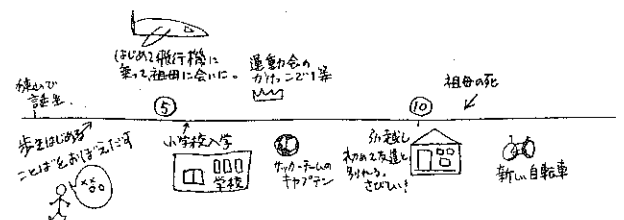 はじめて飛行機に
乗って、祖母に会いに。
運動会の
かけっこで1等
祖母の死
で
誕生。
⑤
⑩
歩きはじめる
ことばをおぼえだす
小学校入学
学校
サッカーチームの
キャプテン
引越し
初めて友達と
別れる。
さびしい!
新しい自転車